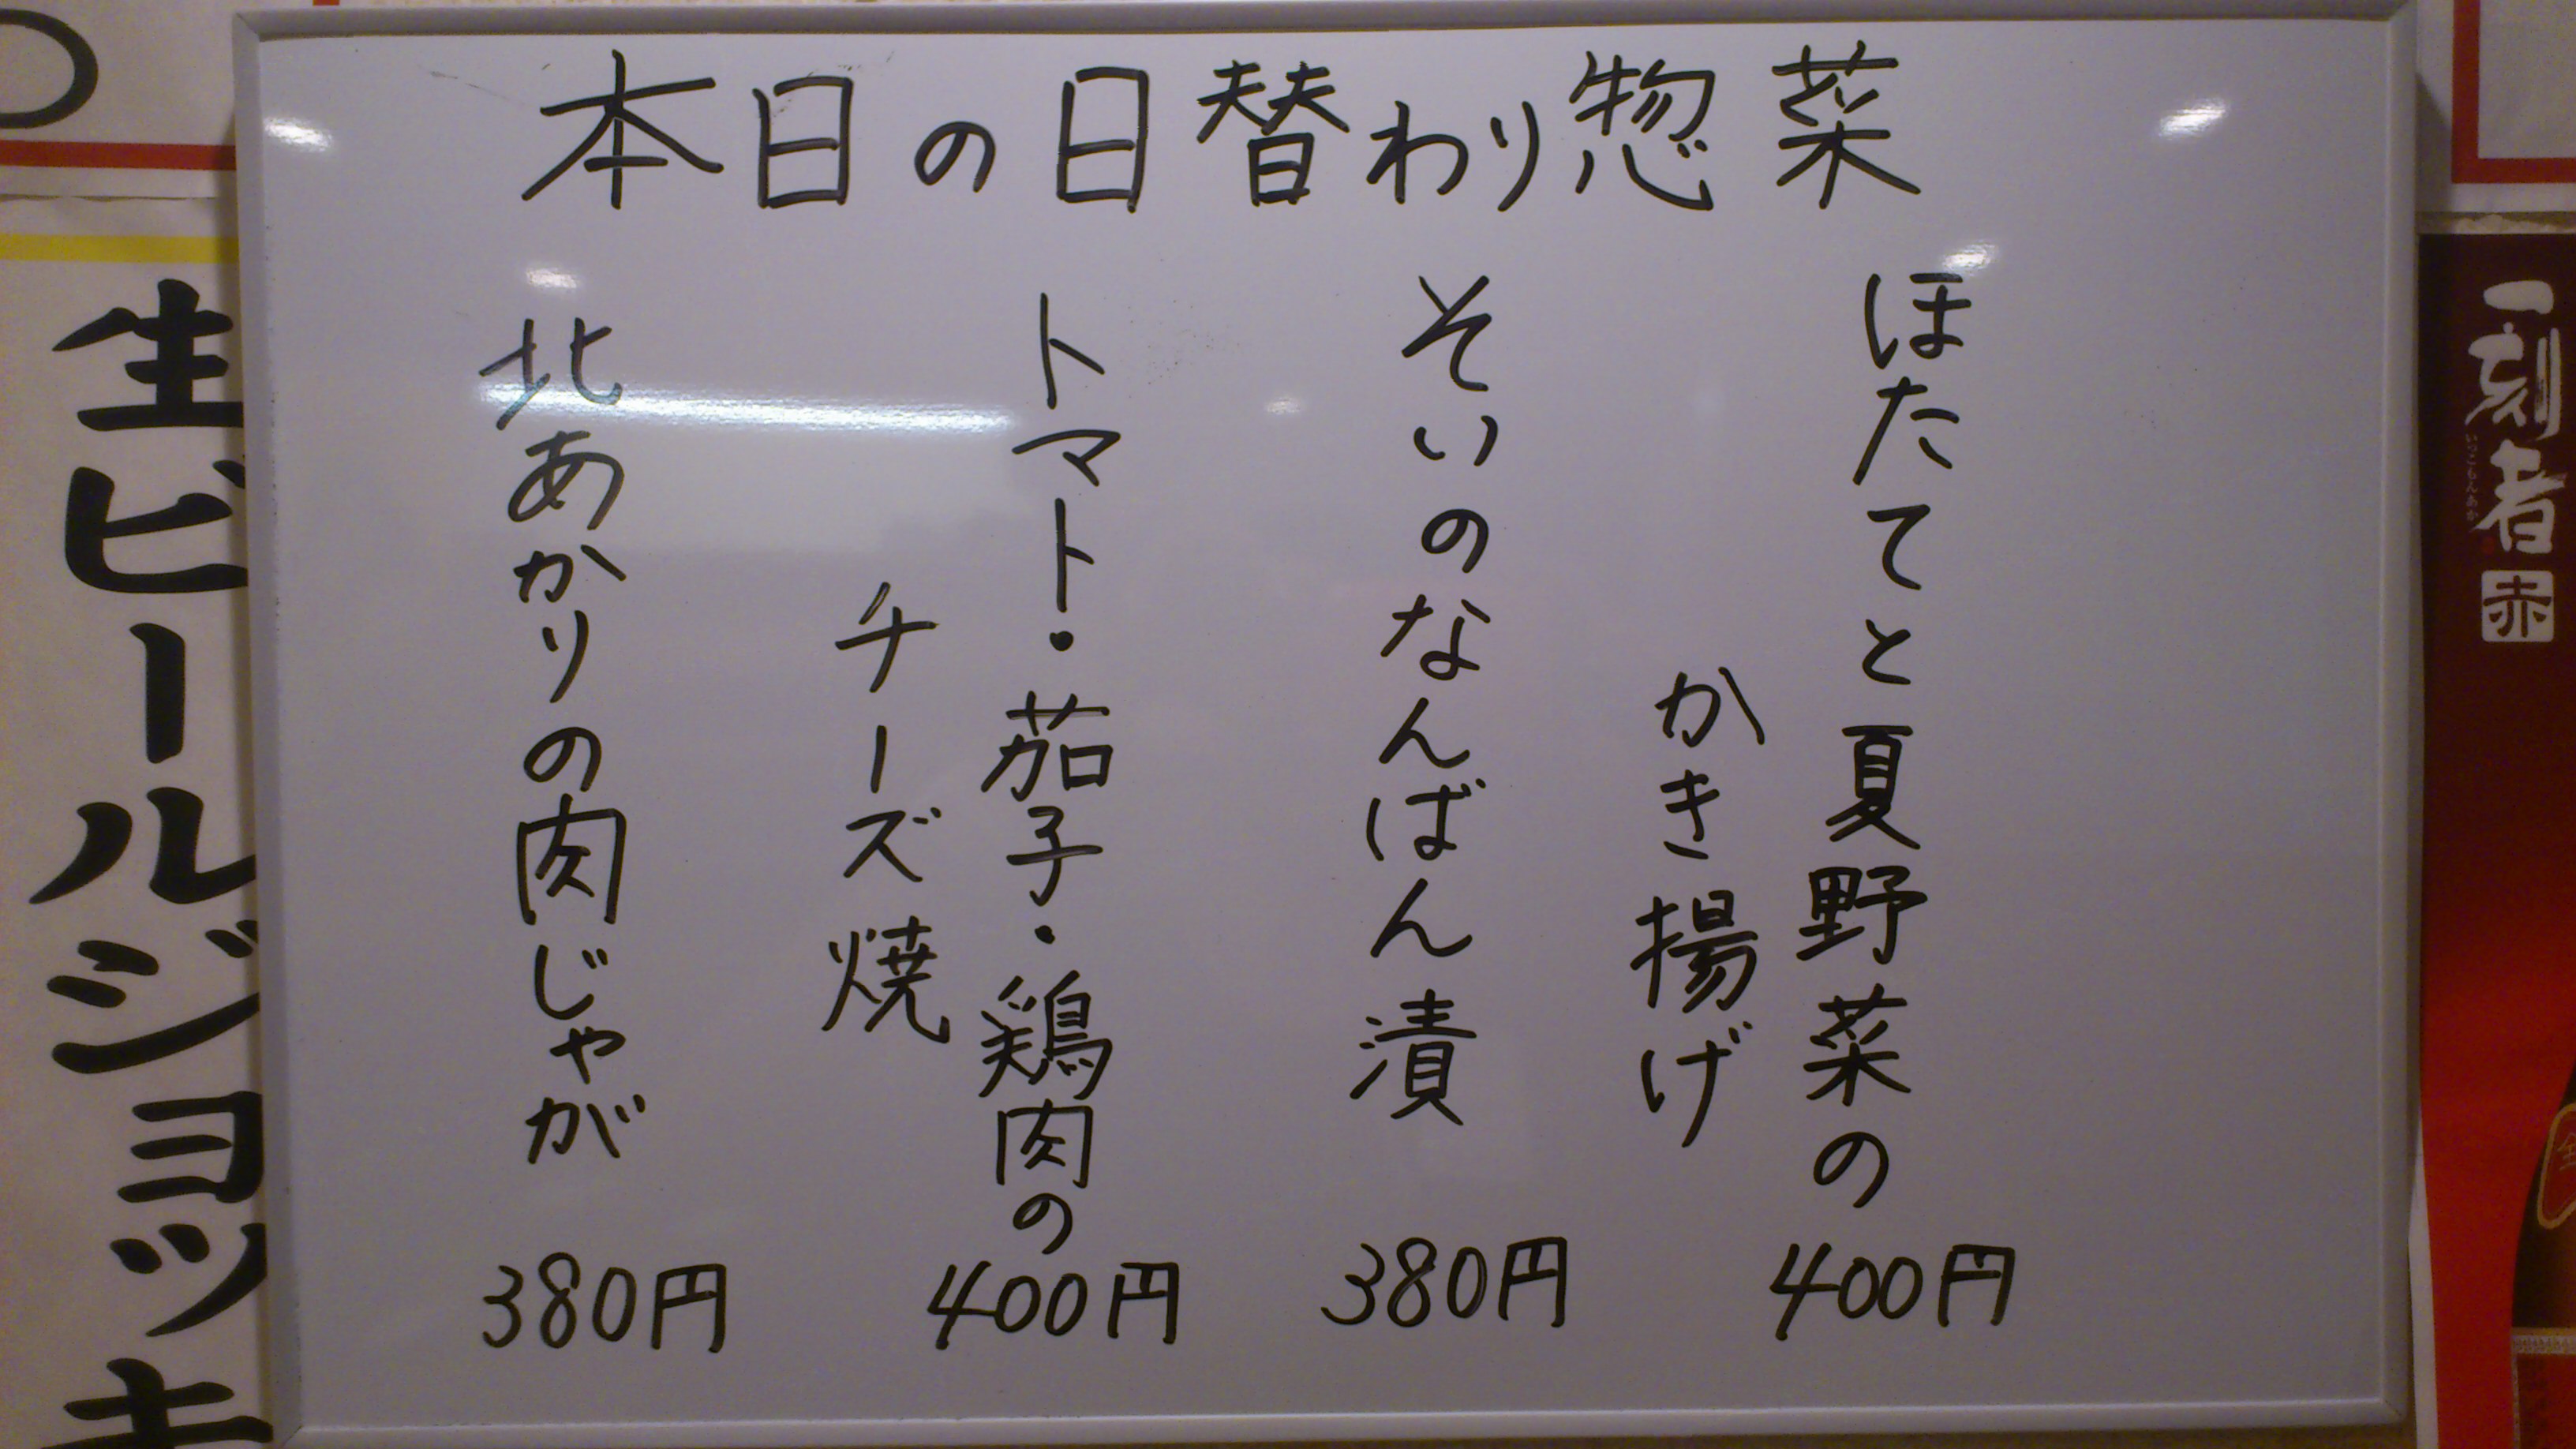 本日の日替わり惣菜
ほたてと夏野菜の
かき揚げ
400円
そいのなんばん漬
380円
トマト・茄子・鶏肉の
チーズ焼
400円
北あかりの肉じゃが
380円
一刻者
いっこもんあか
赤
生ビールジョッキ